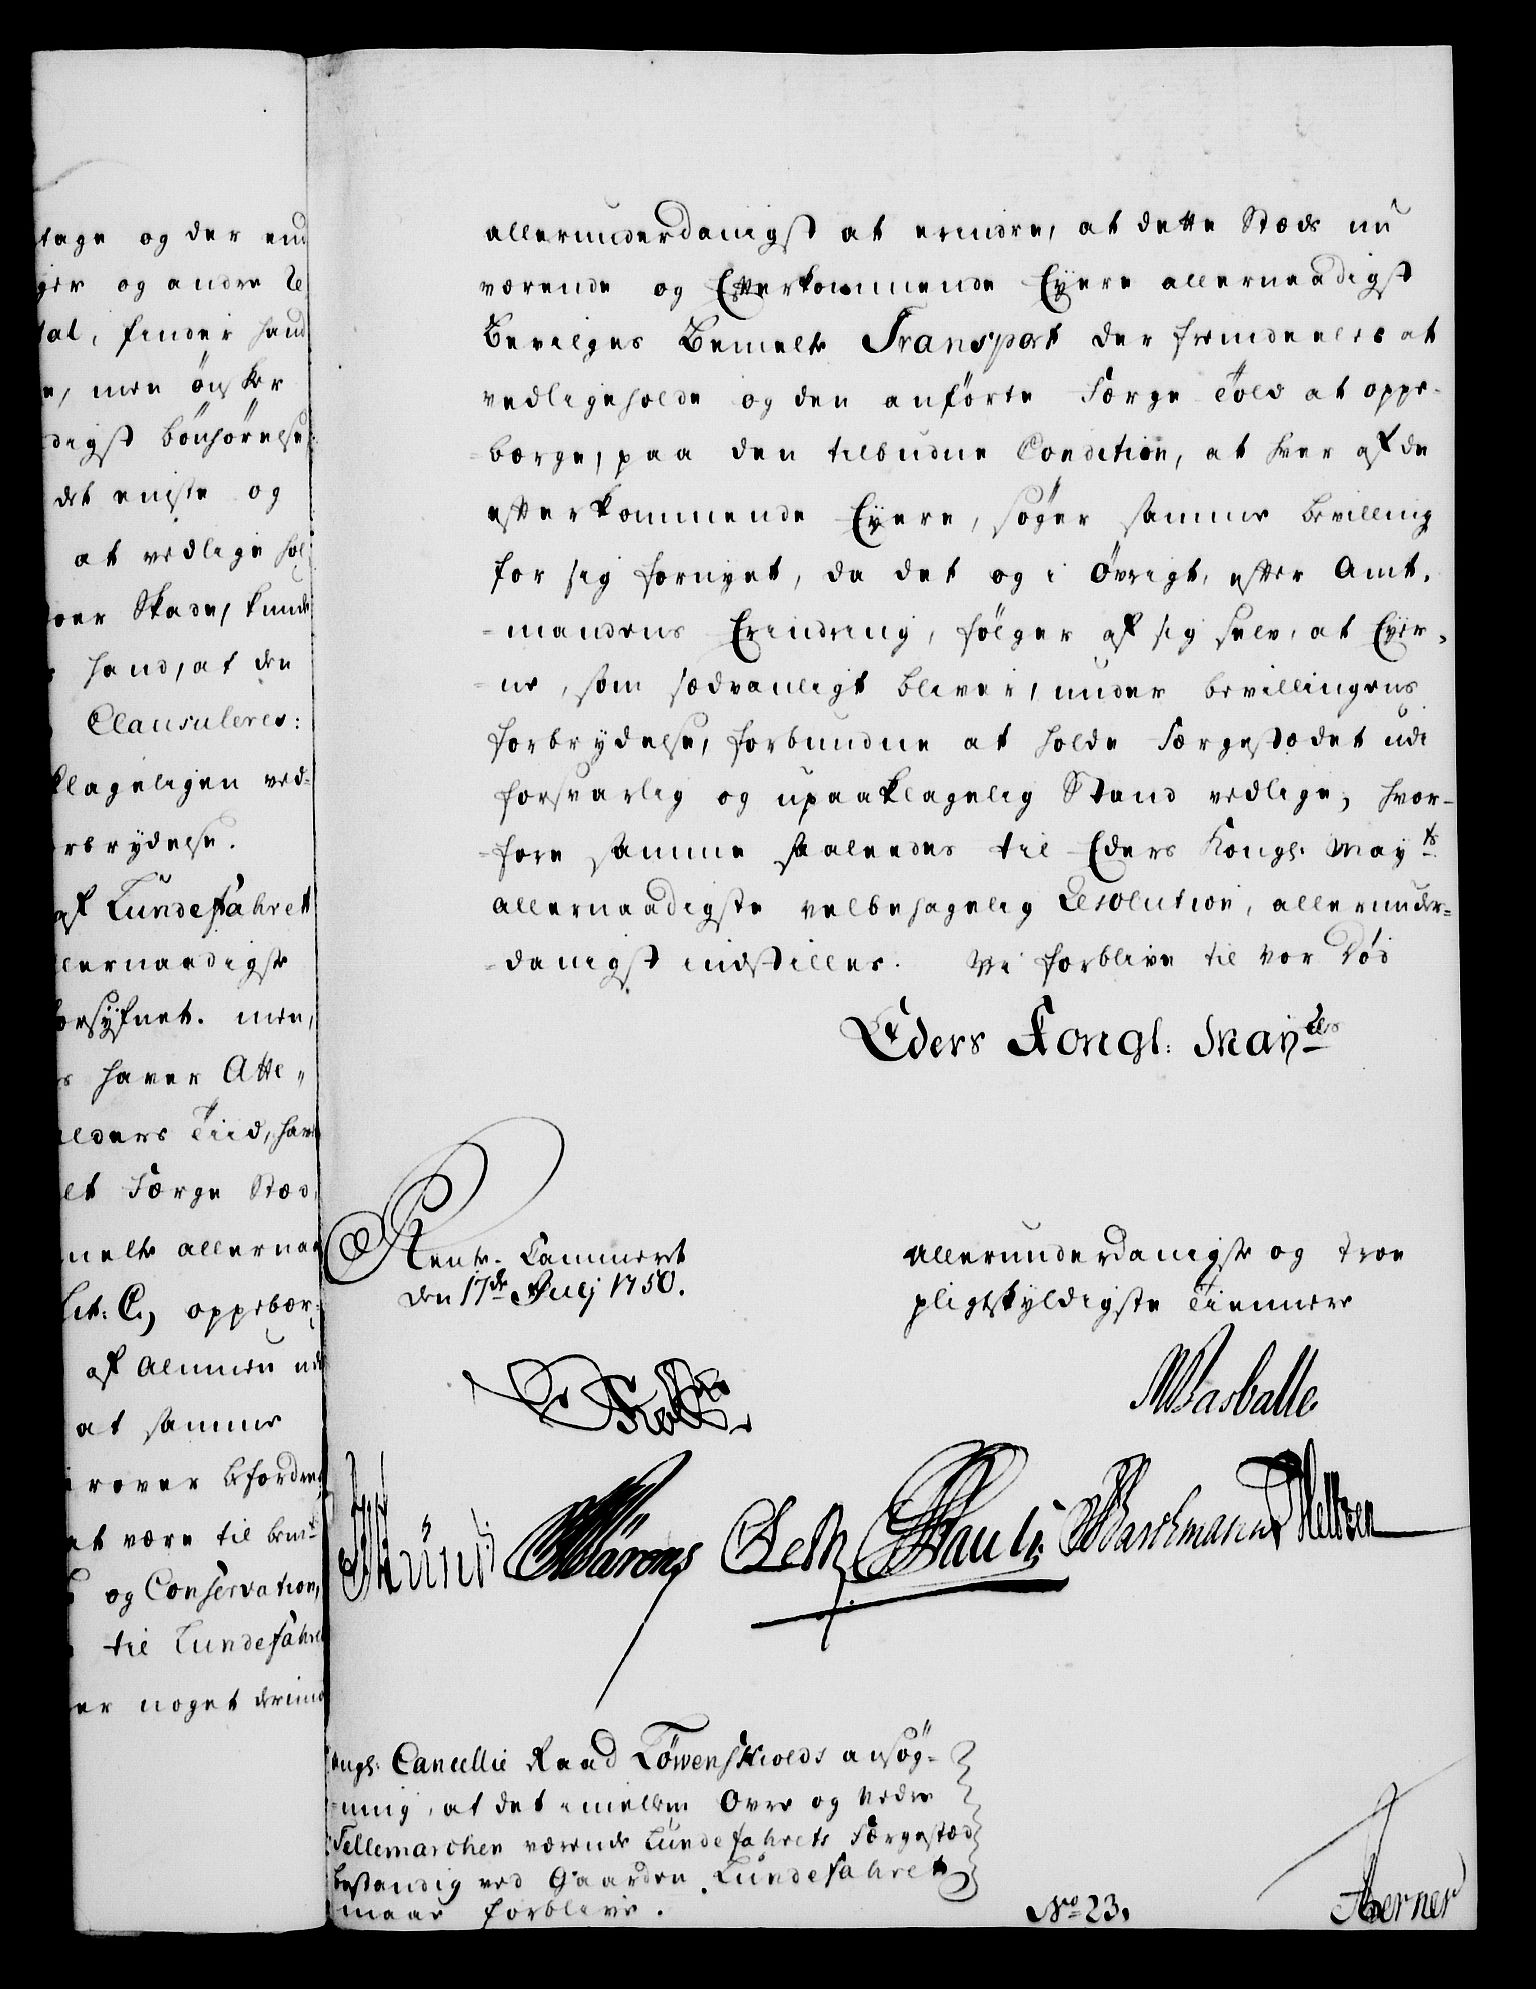 tage og der end
ger og andre Le
tal, finder hand
e, men ønsker
digst bönhörelse,
det eniste og
at vedlige hol
Skade, kunde
hand, at den
Clausuleres:
klageligen ved-
rbrydelse.
af Lundefahrett
lernaadigste
men,
s haver Atte-
alders Tiid, hav
et Færge Stæd,
melte allernaa
Lit: C, oppebær-
af Almuen
at samme
befordre
at være til bemte
og Conservation,
til Lundefahre
er noget derimo
allerunderdanigst at erindre, at dette Stæds nu
værende og Efterkommende Eyere allernaadigst
Bevilges Bemelte Transport der fremdeeles at
vedligeholde og den anførte Færge Told at oppe-
-børge, paa den tilbudne Condition, at hver af de
efterkommende Eyere, søger samme bevilling
for sig fornyet, da det og i Øvrigt, efter Amt-
-mandens Erindring, følger af sig selv, at Eyer-
-ne, som sædvanligt bliver, under bevillingens
forbrydelse, forbundne at holde Færgestædet udi
forsvarlig og upaaklagelig Stand vedlige, hvor-
-fore samme saaledes til Eders Kongl: Mayts
allernaadigste velbehagelig Resolution, allerunder-
-danigst indstilles. Vi forblive til vor Död
Eders Kongl: Mayts
Rente-Cammeret
den 17de Julij 1750.
allerunderdanigste og troe
pligtskyldigste Tiennere
MBasballe
Pauli
Barchmann
Heltzen
Cancellie Raad Löwenskiolds ansøg-
-ning, at det imellem Ovre og Nedre
Tellemarchen værende Lundefahrets Færgestæd
bestandig ved Gaarden Lundefahret
maae forblive.
No 23.
Aerner